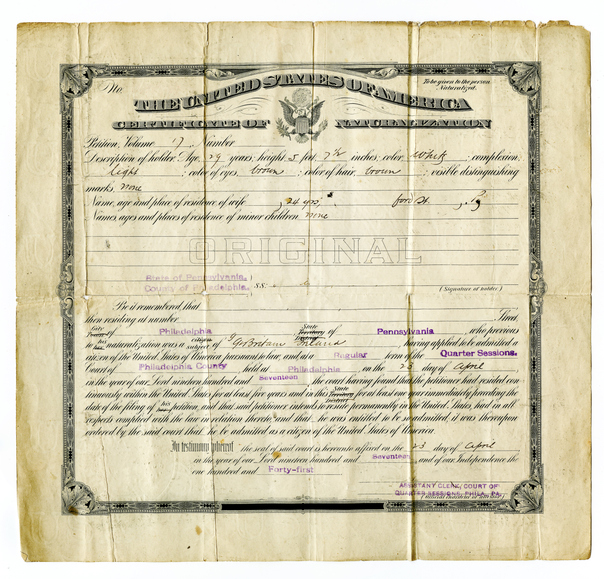 No. To be given to the person Naturalized.
THE UNITED STATES OF AMERICA
CERTIFICATE OF NATURALIZATION
Petition, Volume 7 Number
Description of holder: Age, 29 years; height, 5 feet, 7½ inches; color, White; complexion,
light; color of eyes, brown; color of hair, brown; visible distinguishing
marks, none
Name, age and place of residence of wife 24 yrs, ford St.
Names, ages and places of residence of minor children none
ORIGINAL
State of Pennsylvania,
County of Philadelphia, } S.S.
(Signature of holder.)
Be it remembered, that
then residing at number Street
City of Philadelphia State Territory of Pennsylvania, who previous
to his naturalization was a citizen subject of Gr Britain Ireland, having applied to be admitted a
citizen of the United States of America pursuant to law, and at a Regular term of the Quarter Sessions.
Court of Philadelphia County held at Philadelphia on the 23 day of April
in the year of our Lord nineteen hundred and Seventeen, the court having found that the petitioner had resided con-
tinuously within the United States for at least five years and in this State Territory for at least one year immediately preceding the
date of the filing of his petition, and that said petitioner intends to reside permanently in the United States, had in all
respects complied with the law in relation thereto, and that he was entitled to be so admitted, it was thereupon
ordered by the said court that he be admitted as a citizen of the United States of America.
In testimony whereof the seal of said court is hereunto affixed on the 23 day of April
in the year of our Lord nineteen hundred and Seventeen and of our Independence the
one hundred and Forty-first
ASSISTANT CLERK, COURT OF
QUARTER SESSIONS, PHILA. PA.